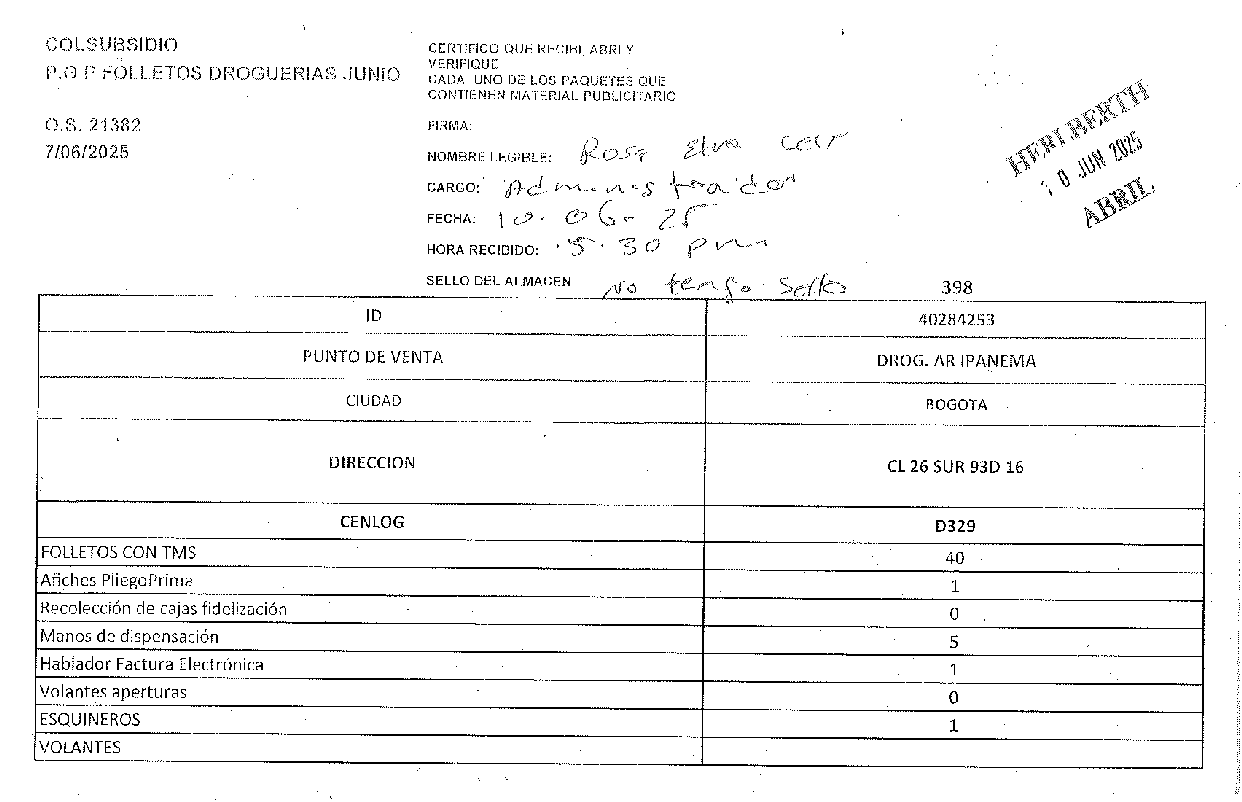 COLSUBSIDIO
P.O.P FOLLETOS DROGUERIAS JUNIO
O.S. 21382
7/06/2025
CERTIFICO QUE RECIBI, ABRI Y
VERIFIQUE
CADA UNO DE LOS PAQUETES QUE
CONTIENEN MATERIAL PUBLICITARIO
FIRMA:
NOMBRE LEGIBLE: Rosa Elva
CARGO: Administrador
FECHA: 10-06-25
HORA RECIBIDO: 5:30 pm
SELLO DEL ALMACEN No tengo Sello
HERIBERTH
10 JUN 2025
ABRIL.
398
ID 40284253
PUNTO DE VENTA DROG. AR IPANEMA
CIUDAD BOGOTA
DIRECCION CL 26 SUR 93D 16
CENLOG D329
FOLLETOS CON TMS 40
Afiches PliegoPrima 1
Recolección de cajas fidelización 0
Manos de dispensación 5
Hablador Factura Electrónica 1
Volantes aperturas 0
ESQUINEROS 1
VOLANTES